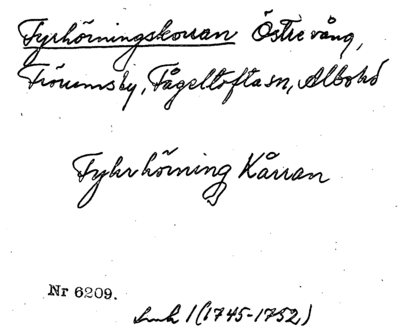 Fyrhörningskorran Östre vång,
Fågeltofta sn, Albo hd
Fyhrhörning Kårran
Nr 6209.
Lmh 1 (1745-1752)